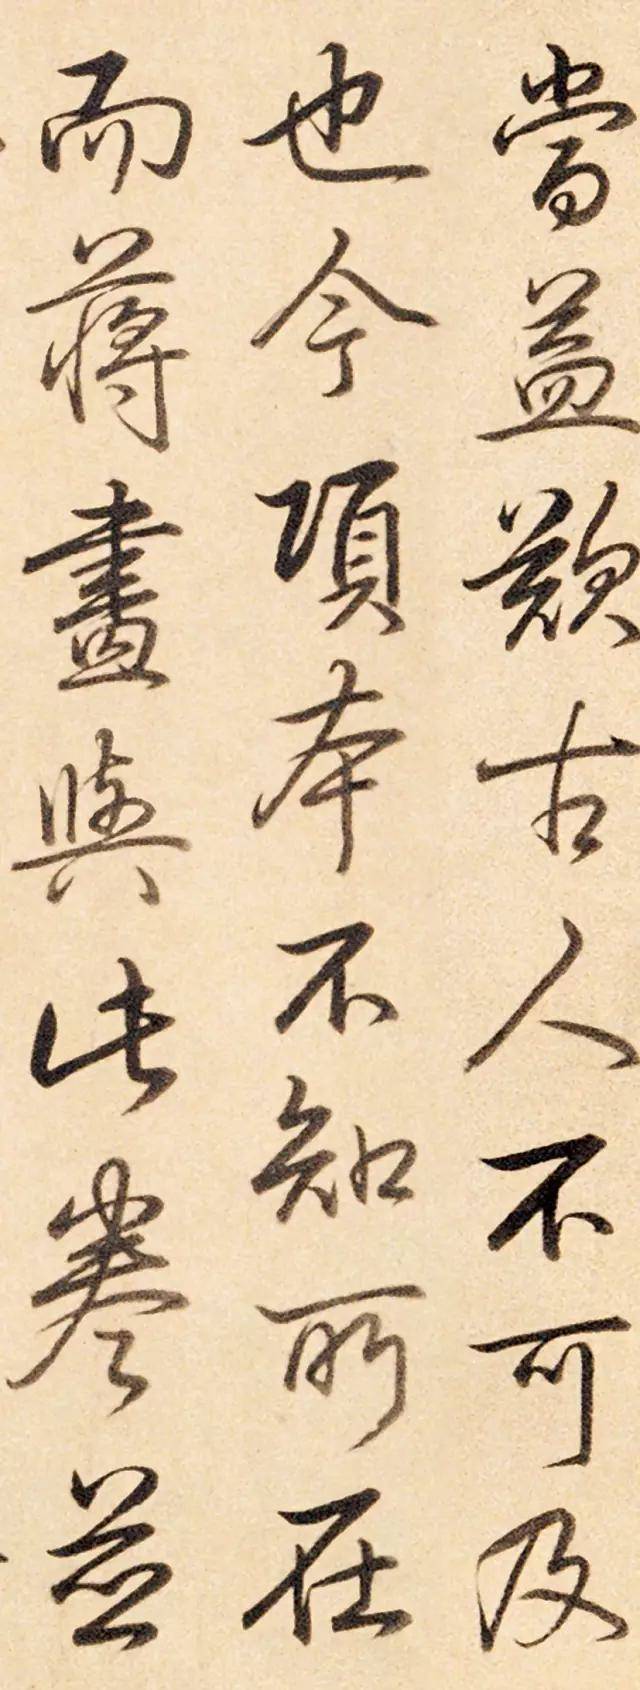 當益歎古人不可及
也今項本不知所在
而蔣畫與此卷並